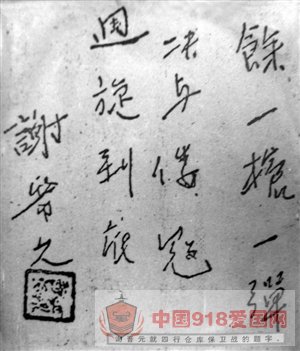 餘一槍一彈
决与倭寇
週旋到底
謝晋元
中国918爱国网
谢晋元就四行仓库保卫战的题字。